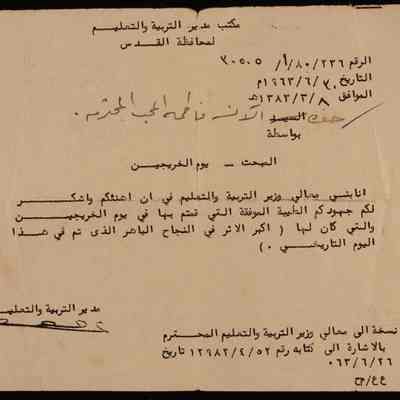 مكتب مدير التربية والتعليم
لمحافظة القدس
الرقم ٣٠٥٠٥ /١/٨٠/٢٣٦
التاريخ ١٩٦٣/٦/٣٠م
الموافق ١٣٨٣/٢/٨ه
حضرة السيد الآنسة فاطمة المحترمة .
بواسطة
المبحث - يوم الخريجين
انابني معالي وزير التربية والتعليم في ان اهنئكم واشكر
لكم جهودكم الطيبة الموفقة التي قمتم بها في يوم الخريجين
والتي كان لها ( اكبر الاثر في النجاح الباهر الذى تم في هذا
اليوم التاريخي ٠ )
مدير التربية والتعليم
نسخة الى معالي وزير التربية والتعليم المحترم
بالاشارة الى كتابه رقم ١٢٩٨٢/٤/٥٢ تاريخ
٠٦٣/٦/٢٦
ع ع/ج ح